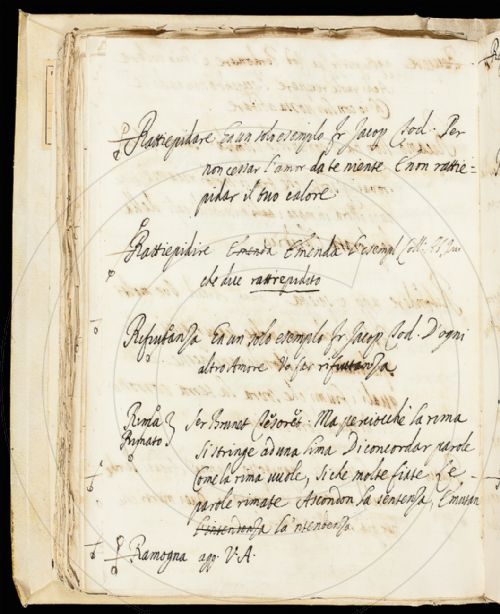 Rattiepidare Ha un solo esempio Fr Jacop Tod. Per
non cessar l'amor da te niente E non rattie=
pidar il tuo calore
Rattiepidire Emenda Emenda l'esempl Coll.
che dice rattiepidito
Rifiutanza Ha un solo esempio Fr Jacop Tod. D'ogni
altro Amore Vo far rifiutanza
Rima
Rimato Ser Brunet Tesoret. Ma perciocchè la rima
Si stringe ad una lima Di concordar parole
Come la rima vuole, Si che molte fiate Le
parole rimate Ascondon la sentenza, E mutan
la 'ntendenza
Ramogna agg. V. A.